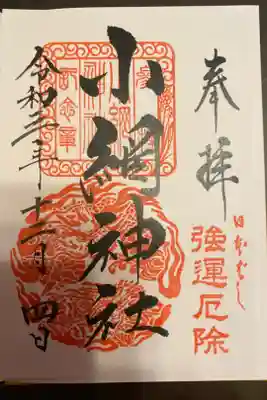 奉拝
日本ばし
強運厄除
小網神社
令和三年十二月四日